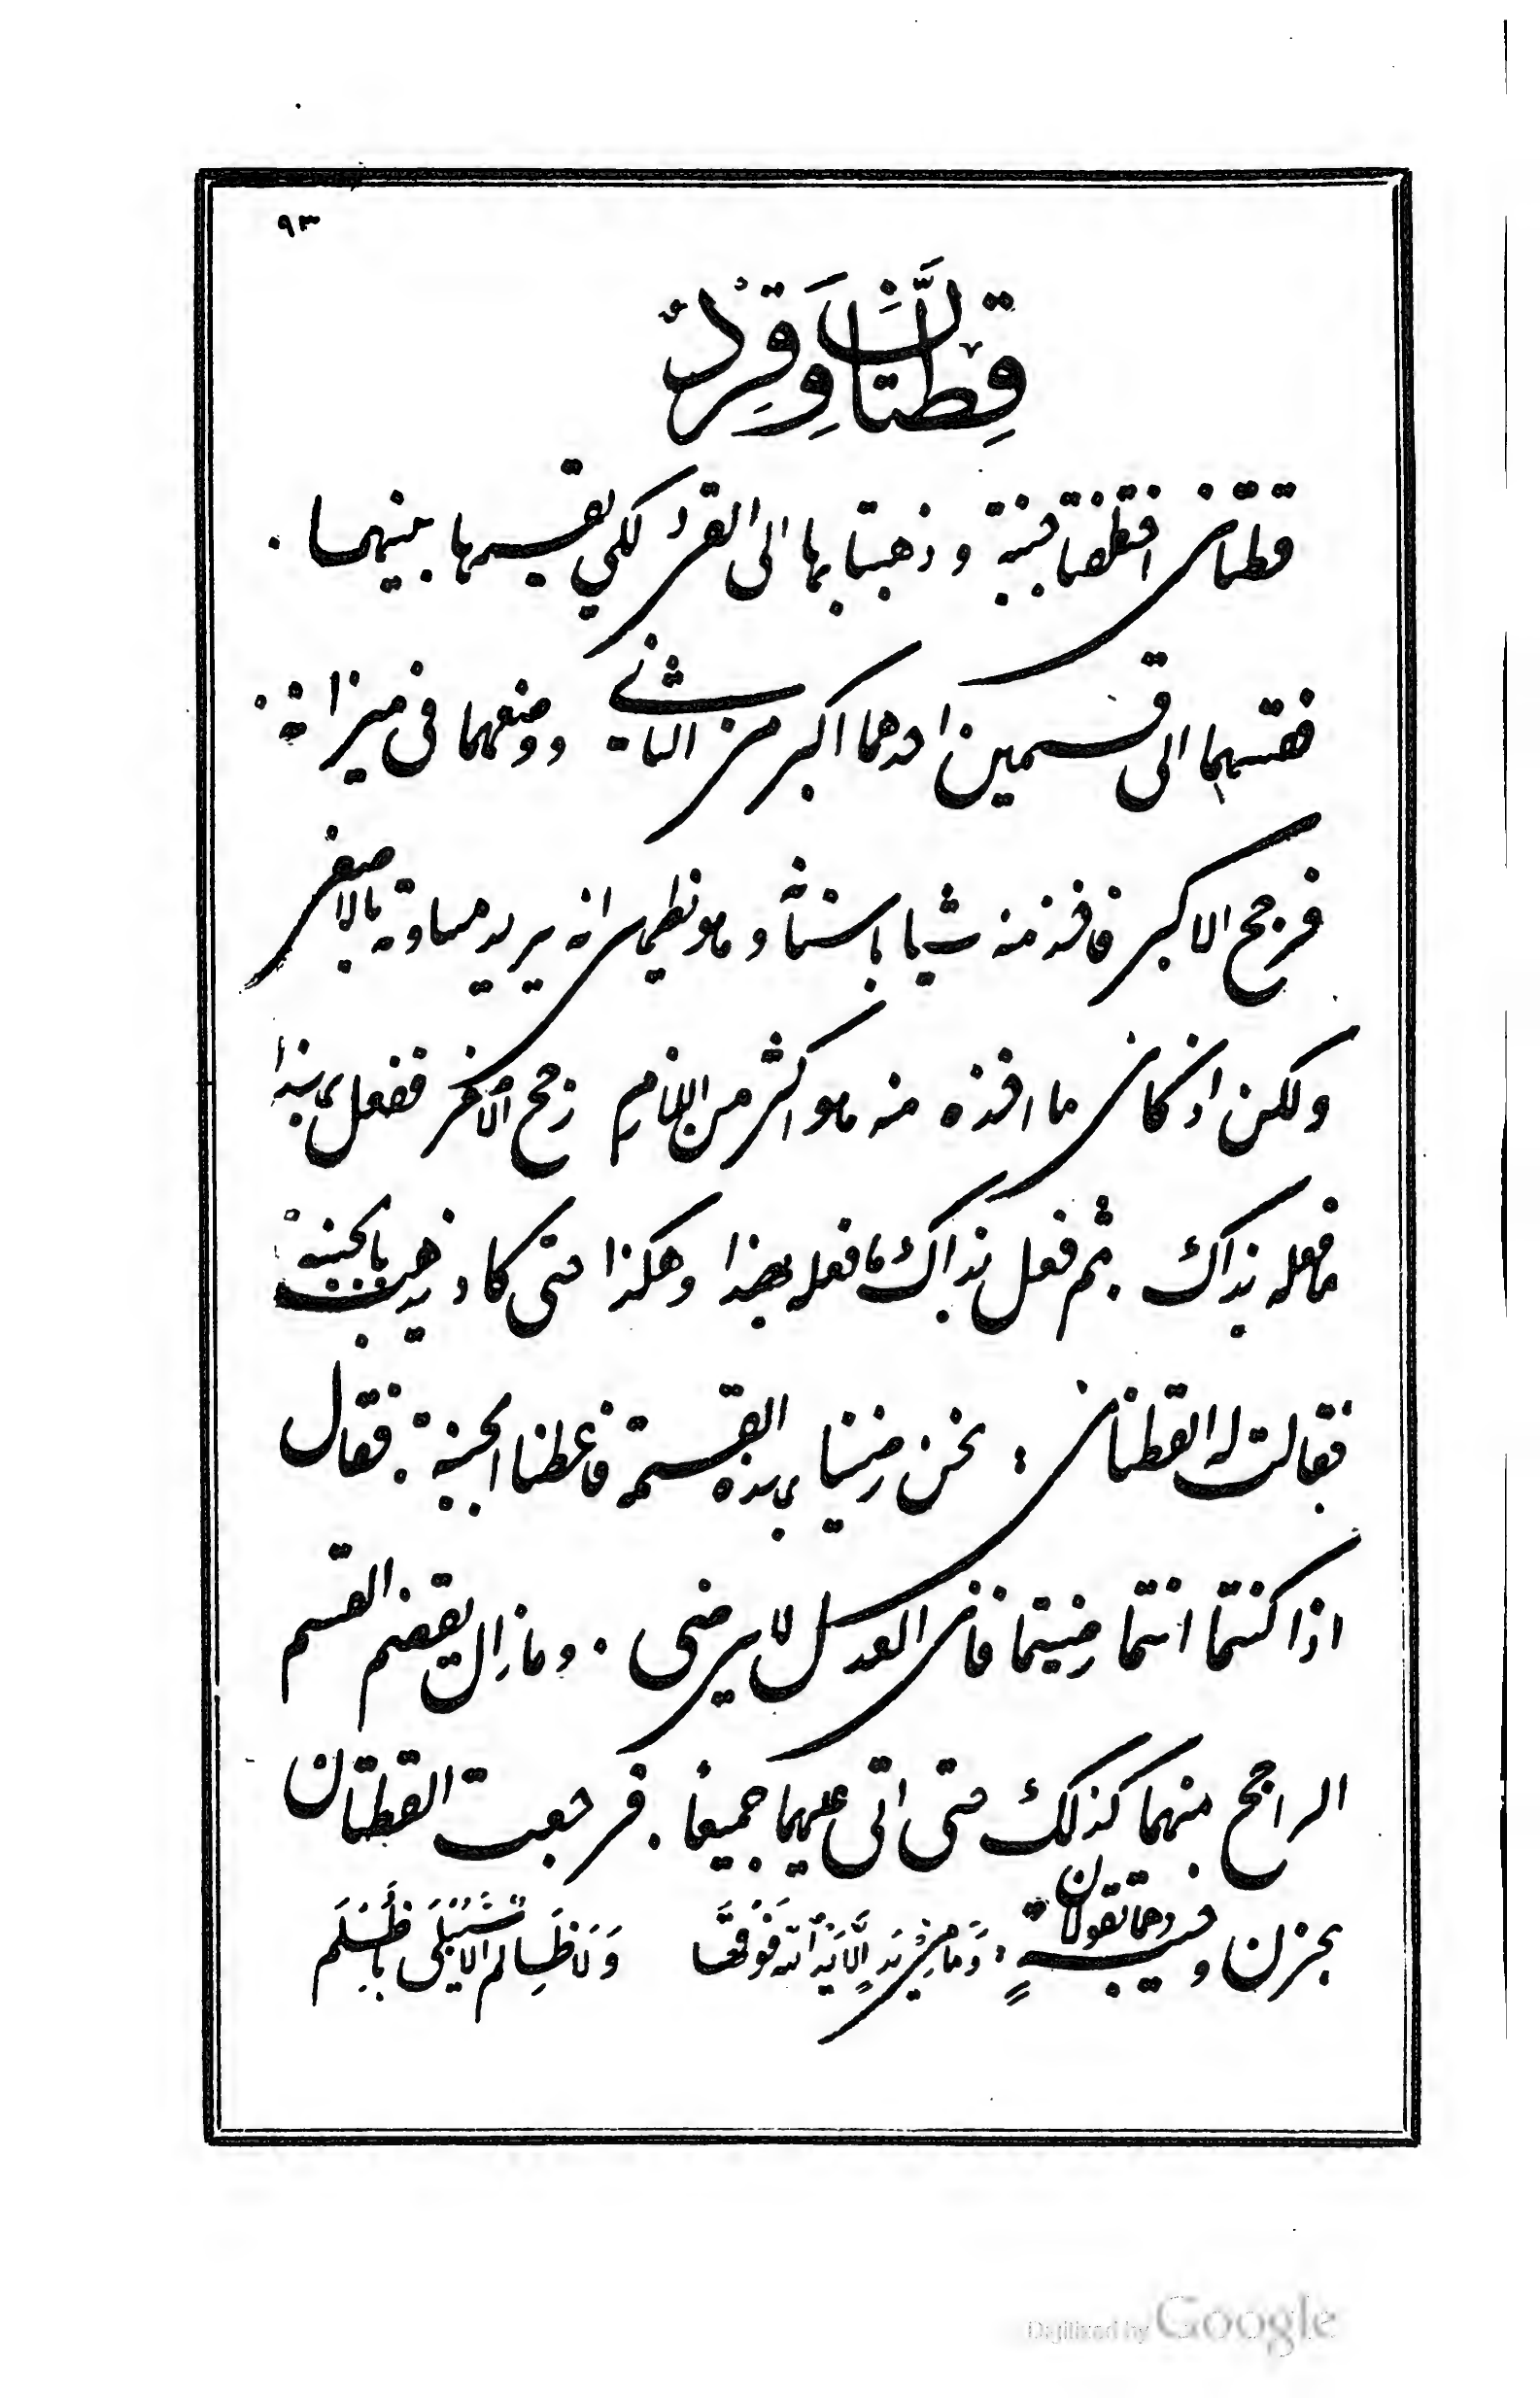 ٩٣
قِطَّتَانِ وَقِرْدٌ
قطتان اختطفتا جبنة وذهبتا بها الى القرد لكي يقسمها بينهما .
فقسمها الى قسمين احدهما اكبر من الثاني ووضعهما في ميزانه .
فرجح الاكبر فاخذ منه شيا باسنانه وهو يظهر انه يريد مساوته بالاصغر
ولكن اذ كان ما اخذه منه هو اكثر من اللازم رجح الأصغر ففعل بهذا
ما فعله بذاك . ثم فعل بذاك ما فعله بهذا وهكذا حتى كاد يذهب بالجبنة
فقالت له القطتان : نحن رضينا بهذه القسمة فاعطنا الجبنة . فقال
اذا كنتما انتما رضيتما فان العدل لا يرضى . وما زال يقضم القسم
الراجح منهما كذلك حتى اتى عليهما جميعا . فرجعت القطتان
بحزن وخيبة وهما تقولان : وَمَا مِنْ يَدٍ إِلَّا يَدُ اللهِ فَوْقَهَا وَلَا ظَالِمٌ إِلَّا سَيُبْلَى بِأَظْلَمِ
Digitized by Google